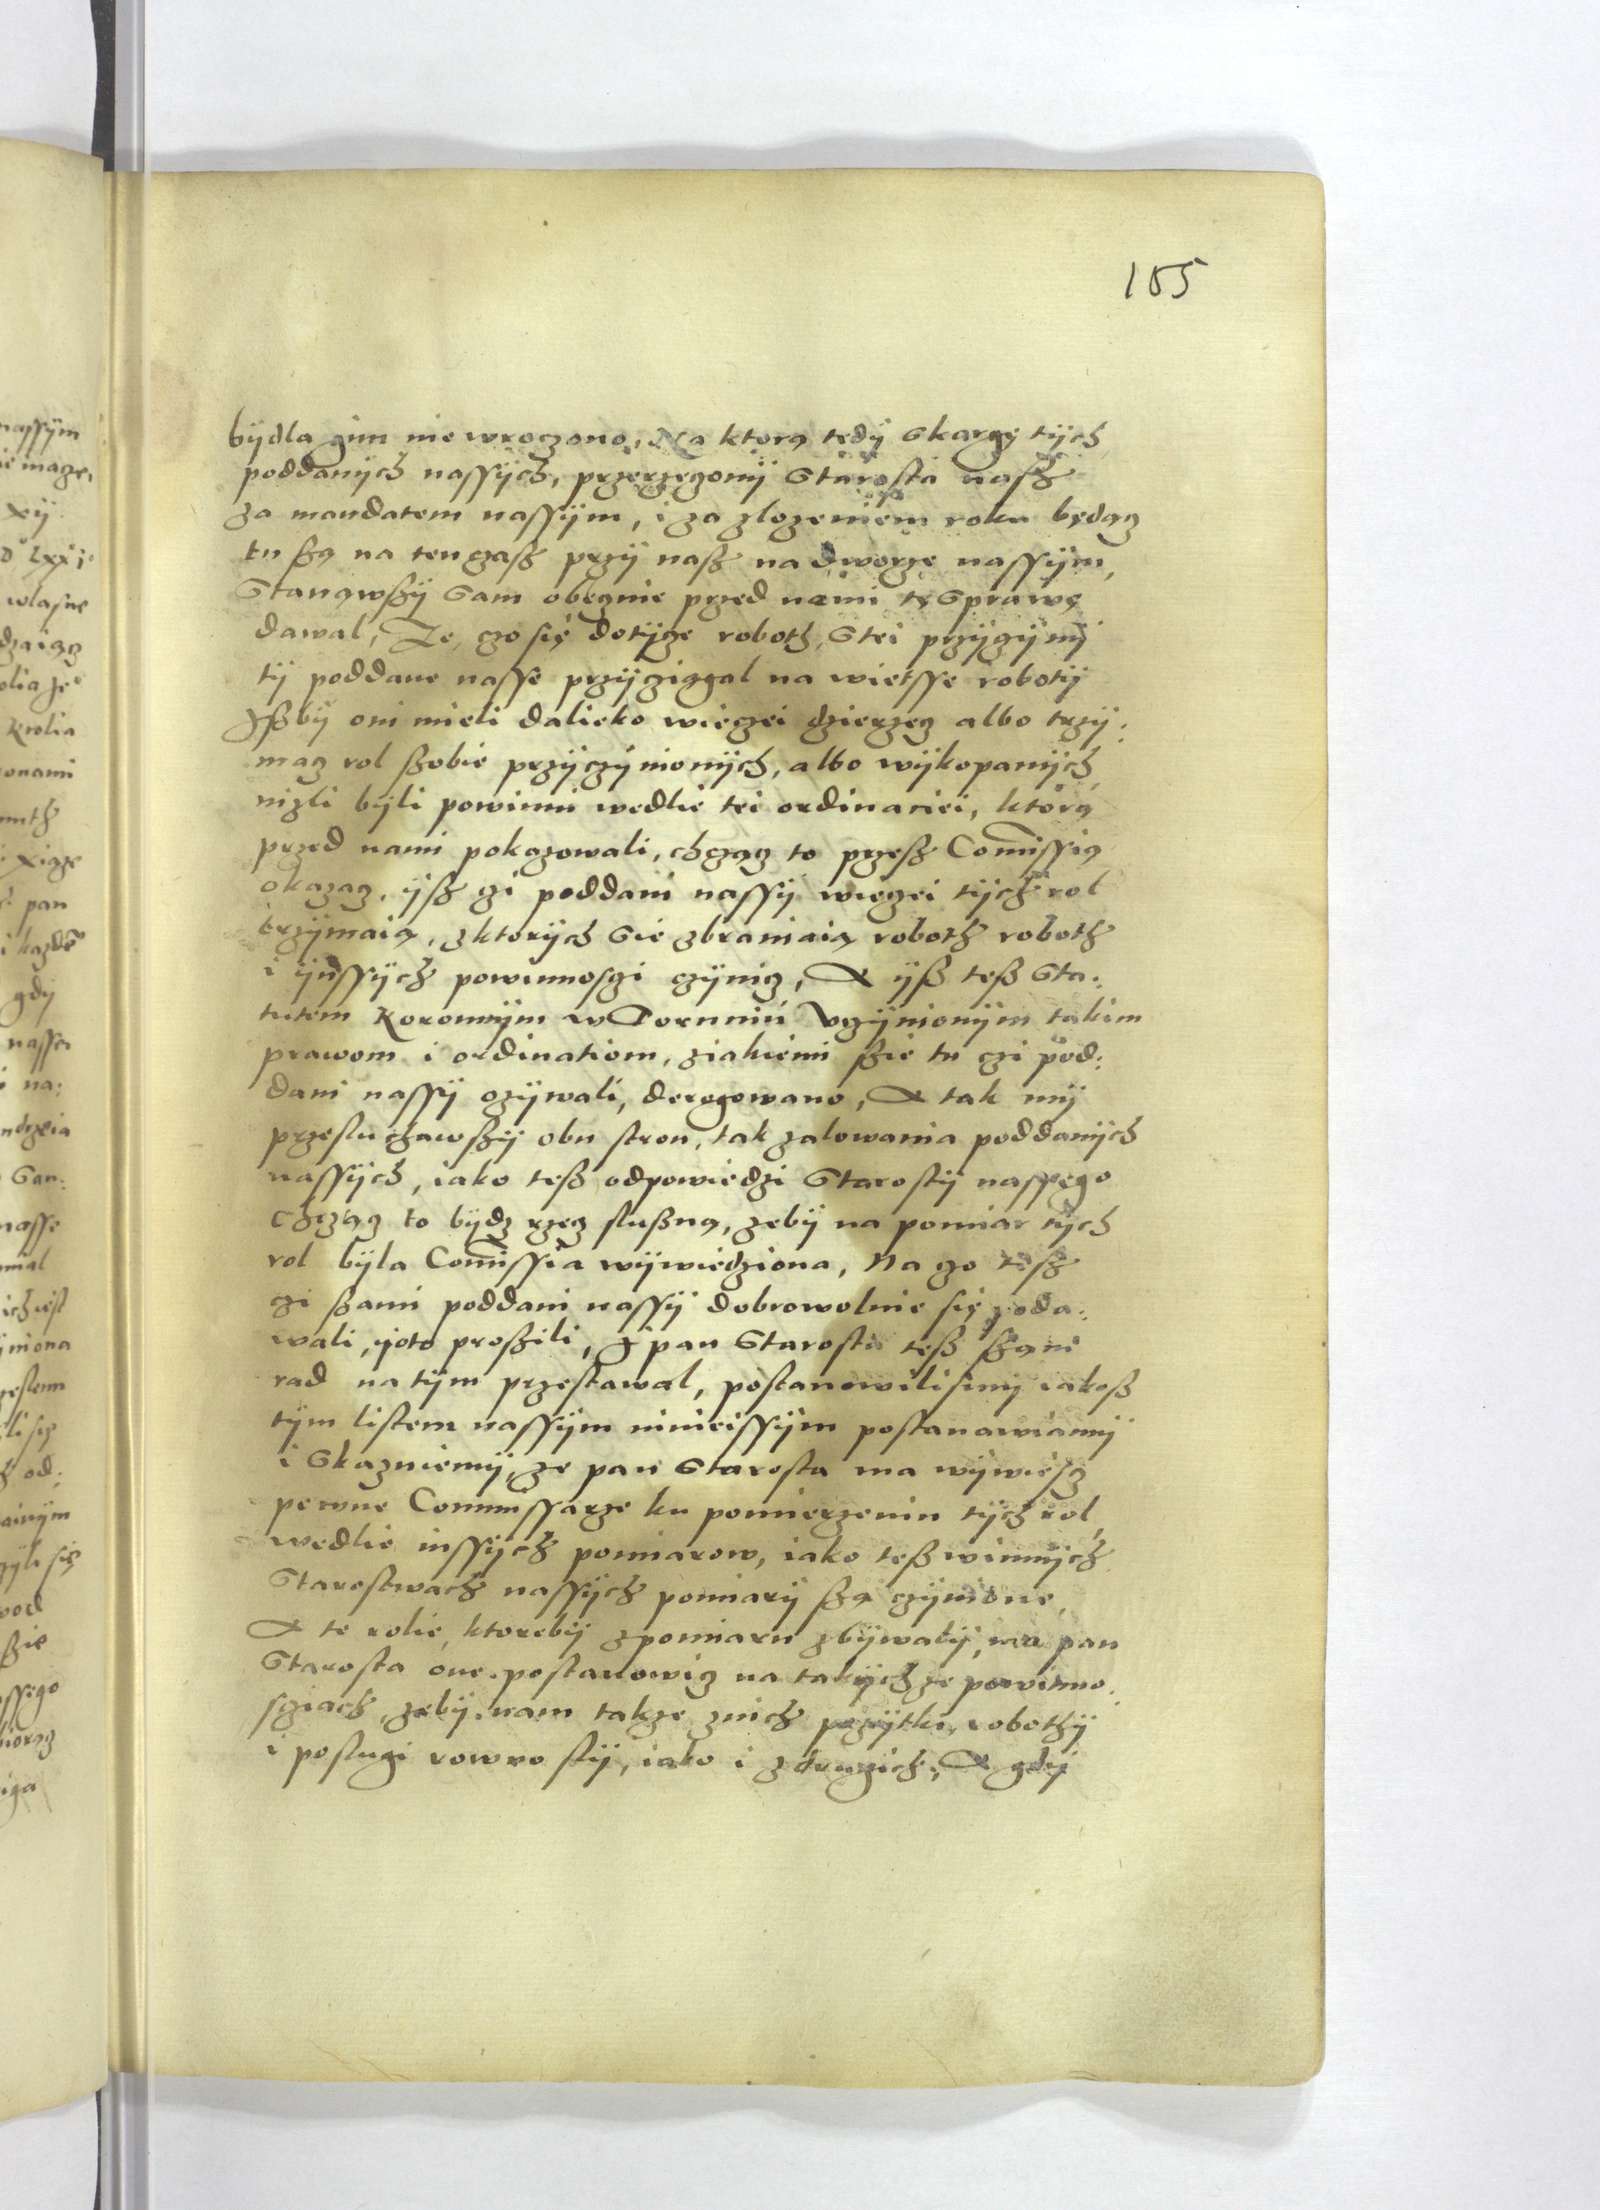 185
bydla gim nie wroczono, Na ktorą tedy Skargę tÿch
poddanÿch nassÿch, przerzeczonÿ Starosta nasz
za mandatem nassÿm, i za zlozeniem roku będącz
tu ßą na ten czaß przÿ nasz na dworze nassÿm,
Stanąwßÿ Sam obecznie przed nami tę Sprawę
dawal, Ze, czo się dotÿcze roboth, Stei przÿczÿnÿ
tÿ poddane nasse przÿcziągal na wietsse robotÿ
Jßbÿ oni mieli dalieko wieczei dzierzecz albo trzÿ:
macz rol ßobie przÿczÿnionÿch, albo wÿkopanÿch
nizli bÿli powinni wedlie tei ordinaciei, ktorą
przed nami pokazowali, chcząz to przesz Comissią
okazacz, ÿsz czi poddani nassÿ wieczei tÿch rol
trzÿmaią, z ktorÿch Sie zbraniaią roboth roboth
i ÿnssÿch powinnosczi czÿnicz, A ÿß teß Sta:
tutem Koronnÿm w Toruniu Vczÿnionÿm takim
prawom i ordinatiom, ziakiemi ßie tu czi pod:
dani nassÿ ozÿwali, derogowano, A tak mÿ
przesluchawßÿ obu stron, tak zalowania poddanÿch
nassÿch, iako teß odpowiedzi Starostÿ nassego
chcząz to bÿdz rzecz slußną, zebÿ na pomiar tÿch
rol bÿla Comissia wÿwiedziona, Na czo tesz
czi ßami poddani nassÿ dobrowolnie się poda:
wali, ÿ oto proßili, J pan Starosta teß ßąm
rad na tÿm przestawal, postanowilismÿ iakoß
tÿm listem nassÿm ninieissÿm postanawiamÿ
i Skazuiemÿ, ze pan Starosta ma wÿwiescz
pewne Commissarze ku pomierzeniu tÿch rol,
wedlie inssÿch pomiarow, iako teß winnÿch
Starostwach nassÿch pomiarÿ ßą czÿnione,
A te rolie, ktorebÿ zpomiaru zbÿwalÿ, ma pan
Starosta one postanowicz na takÿchze powinno:
scziach, zebÿ nam takze znich pozÿtki, robothÿ
i poslugi rowno slÿ, iako i z drugich, A gdÿ